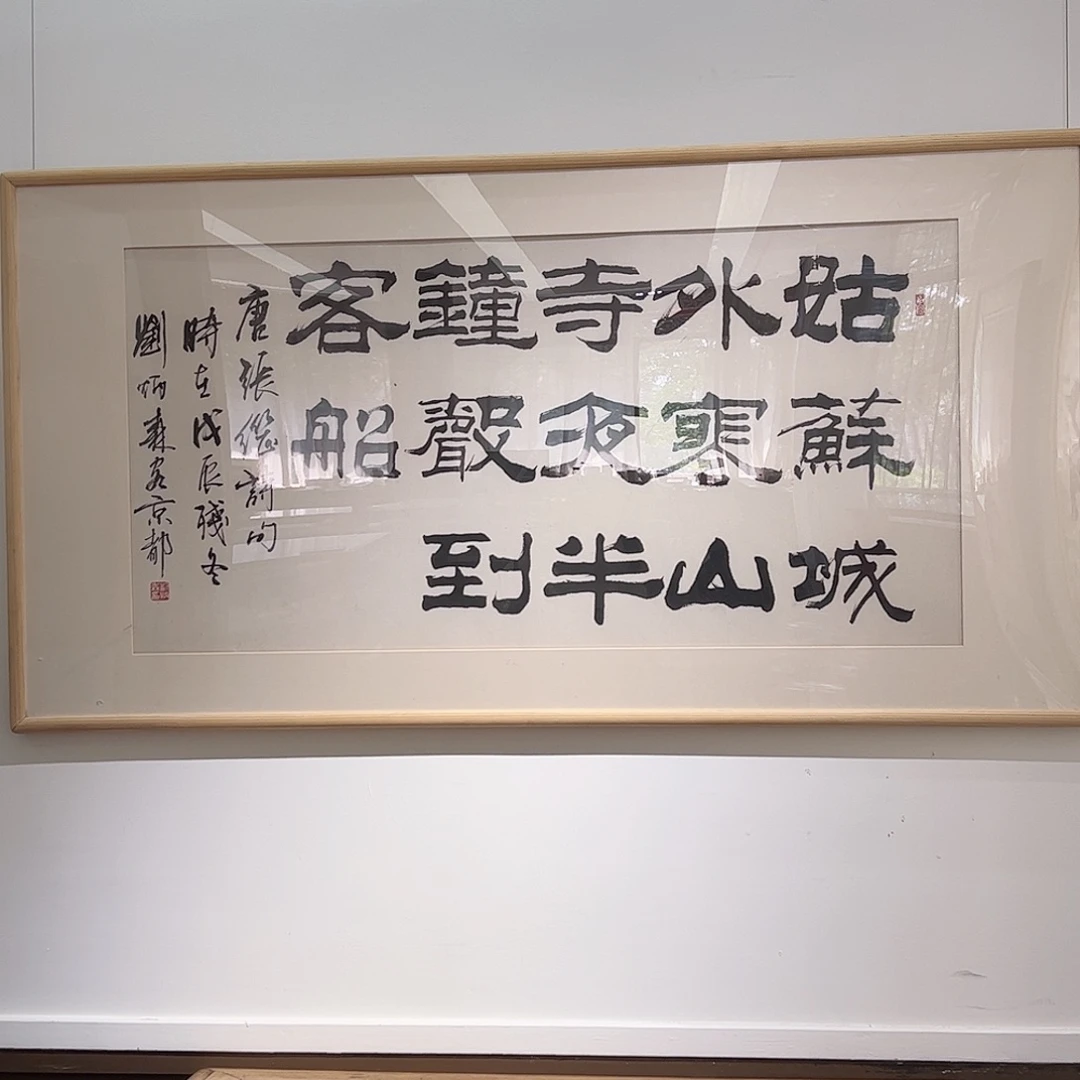 姑蘇城
外寒山
寺夜半
鐘聲到
客船
唐張繼詩句
時在戊辰殘冬
劉炳森客京都